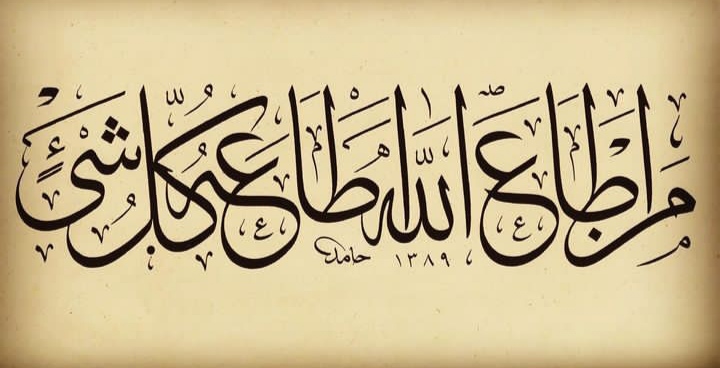 من اطاع الله اطاعه كُلُّ شَىْءٍ
حامد ١٣٨٩